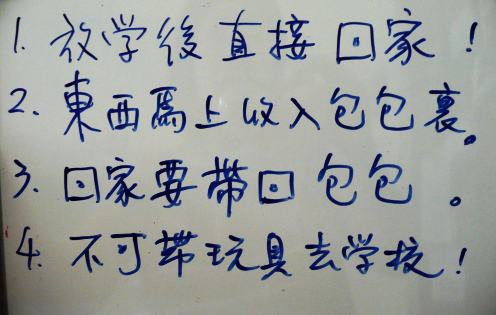 1. 放学後直接回家！
2. 東西馬上收入包包裏。
3. 回家要帶回包包。
4. 不可帶玩具去学校！